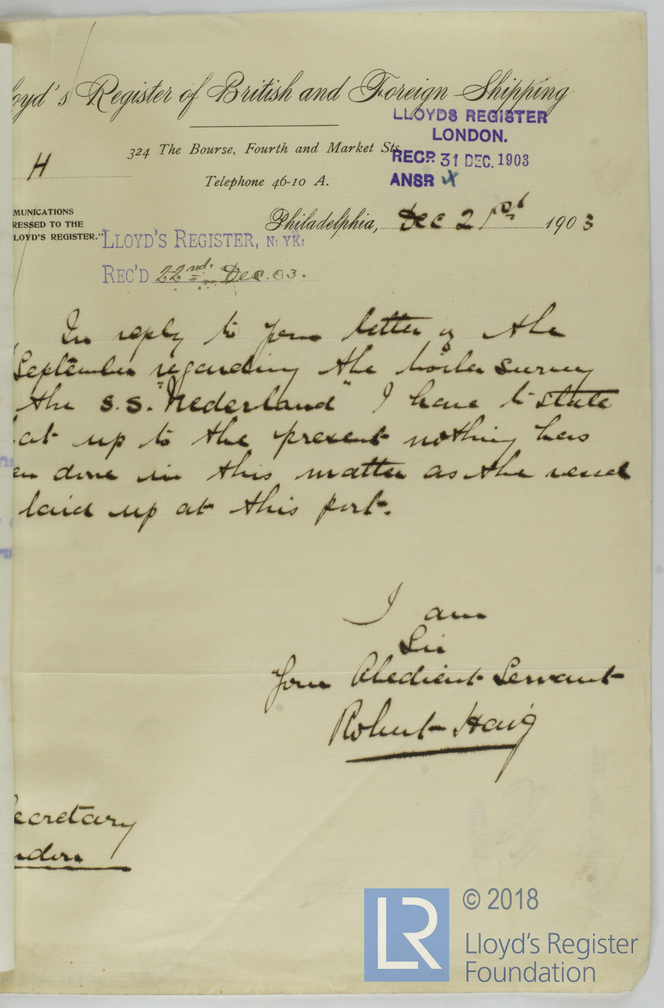 oyd's Register of British and Foreign Shipping
LLOYDS REGISTER
LONDON.
RECD. 31 DEC. 1903
ANSR X
324 The Bourse, Fourth and Market Sts.
Telephone 46-10 A.
H
MUNICATIONS
RESSED TO THE
LLOYD'S REGISTER."
Philadelphia, Dec 21st 1903
LLOYD'S REGISTER, N. YK:
REC'D 22nd. Dec. 03.
In reply to your letter of the
September regarding the boiler survey
the S.S. "Nederland" I have to state
at up to the present nothing has
en done in this matter as the vessel
laid up at this port.
I am
Sir
Your Obedient Servant
Robert Haig
ecretary
ndon
LR
© 2018
Lloyd's Register
Foundation